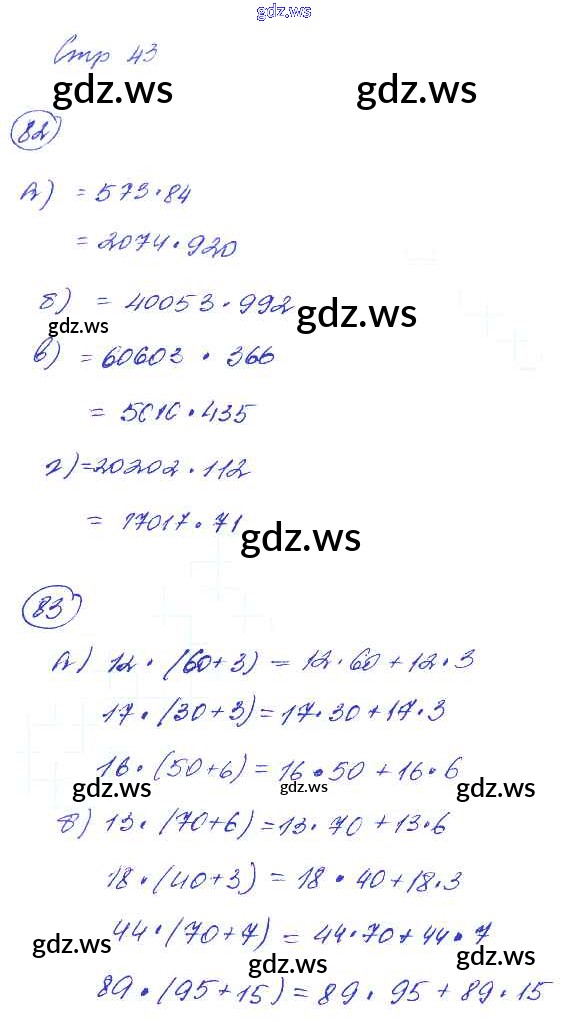 gdz.ws
Стр 43
gdz.ws gdz.ws
82
а) = 573·84
= 2074·920
б) = 40053·992
gdz.ws gdz.ws
в) = 60603 · 366
= 5010·435
г) = 20202·112
= 17017·71
gdz.ws
83
а) 12·(60+3) = 12·60+12·3
17·(30+3) = 17·30+17·3
16·(50+6) = 16·50+16·6
gdz.ws gdz.ws gdz.ws
б) 13·(70+6) = 13·70+13·6
18·(40+3) = 18·40+18·3
44·(70+7) = 44·70+44·7
gdz.ws gdz.ws gdz.ws
89·(95+15) = 89·95+89·15